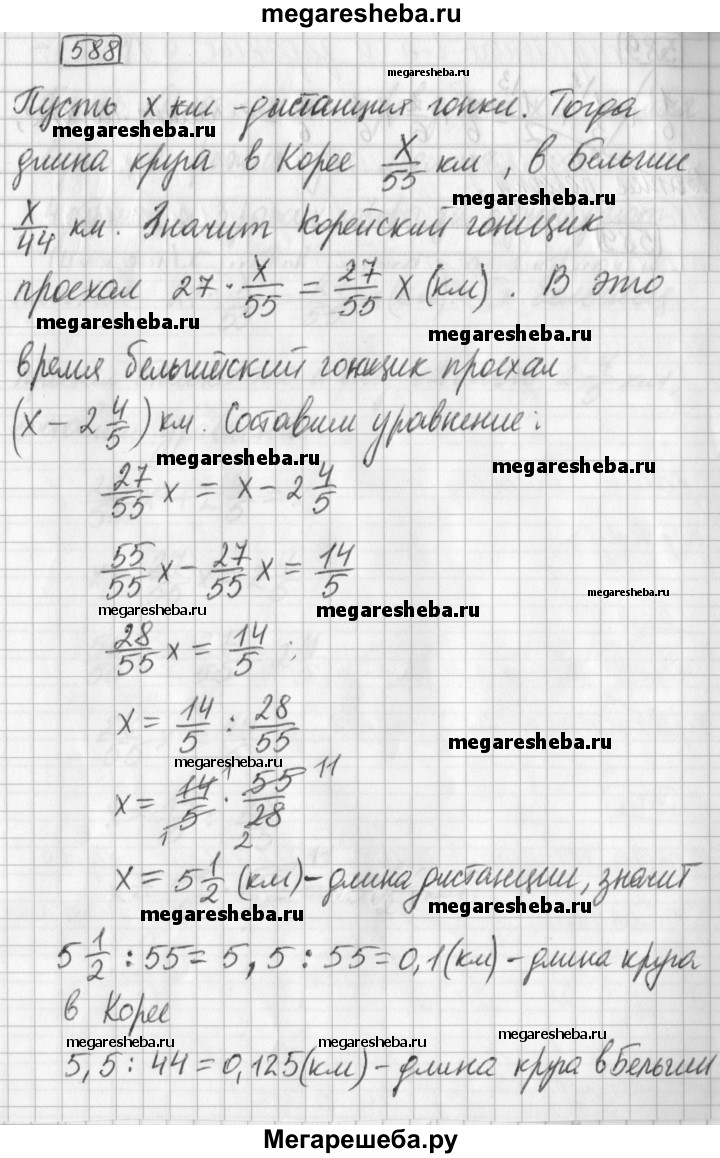 megaresheba.ru
588
megaresheba.ru
Пусть x км - дистанция гонки. Тогда
megaresheba.ru
длина круга в Корее x/55 км, в Бельгии
megaresheba.ru
x/44 км. Значит Корейский гонщик
проехал 27 · x/55 = 27/55 x (км). В это
megaresheba.ru
megaresheba.ru
время бельгийский гонщик проехал
(x - 2 4/5) км. Составим уравнение:
megaresheba.ru
megaresheba.ru
27/55 x = x - 2 4/5
55/55 x - 27/55 x = 14/5
megaresheba.ru
megaresheba.ru
megaresheba.ru
28/55 x = 14/5 ;
x = 14/5 : 28/55
megaresheba.ru
megaresheba.ru
x = 14/5 · 55/28
1 1 11 2
x = 5 1/2 (км) - длина дистанции, значит
megaresheba.ru
megaresheba.ru
5 1/2 : 55 = 5,5 : 55 = 0,1 (км) - длина круга
в Корее
megaresheba.ru
megaresheba.ru
megaresheba.ru
5,5 : 44 = 0,125 (км) - длина круга в Бельгии
Мегарешеба.ру